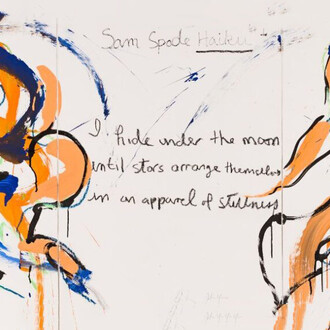 Sam Spade Haiku
I hide under the moon
until stars arrange themselves
in an apparel of stillness